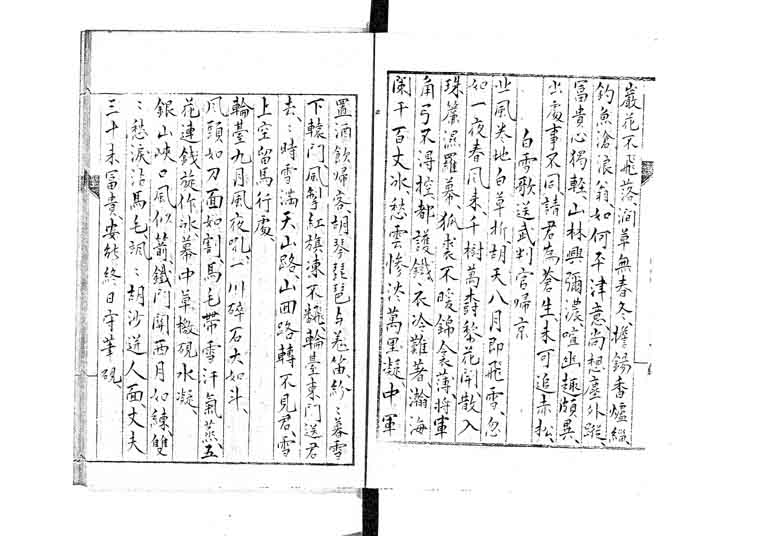 巖花不飛落、澗草無春冬、擔錫香爐緇、
釣魚滄浪翁、如何平津意、尚想塵外蹤、
富貴心獨輕、山林興彌濃、喧幽趣頗異、
出處事不同、請君為蒼生、未可追赤松、
白雪歌送武判官歸京
北風卷地白草折、胡天八月即飛雪、忽
如一夜春風來、千樹萬樹梨花開、散入
珠簾濕羅幕、狐裘不暖錦衾薄、將軍
角弓不得控、都護鐵衣冷難著、瀚海
闌干百丈冰、愁雲慘淡萬里凝、中軍
置酒飲歸客、胡琴琵琶與羌笛、紛〻暮雪
下轅門、風掣紅旗凍不飜、輪臺東門送君
去、〻時雪滿天山路、山回路轉不見君、雪
上空留馬行處、
輪臺九月風夜吼、一川碎石大如斗、
風頭如刀面如割、馬毛帶雪汗氣蒸、五
花連錢旋作冰、幕中草檄硯水凝、
銀山峽口風似箭、鐵門關西月如練、雙
〻愁淚沾馬毛、颯〻胡沙迸人面、丈夫
三十未富貴、安能終日守筆硯、